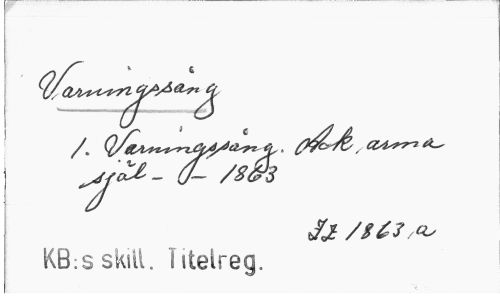 Varningssång
1. Varningssång. Ack, arma
själ – – 1863
ZZ 1863, a
KB:s skill. Titelreg.